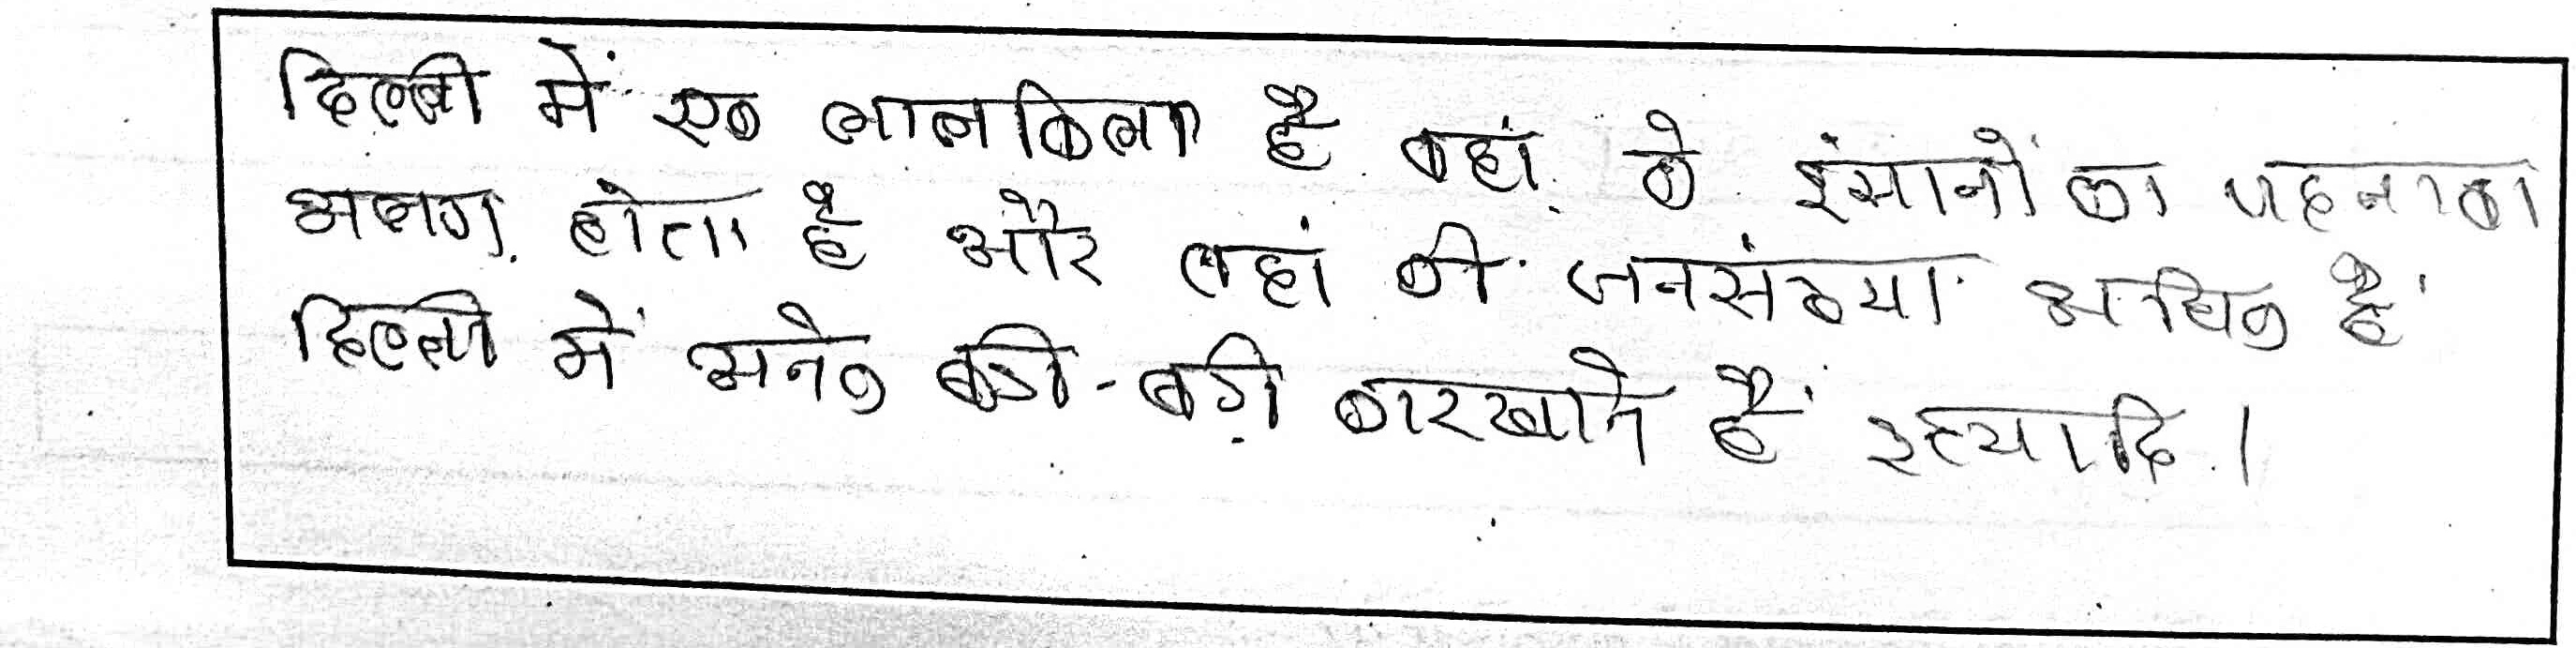 दिल्ली में एक लालकिला है वहां के इंसानों का पहनावा
अलग होता है और वहां की जनसंख्या अधिक है
दिल्ली में अनेक बड़ी-बड़ी कारखाने हैं इत्यादि।